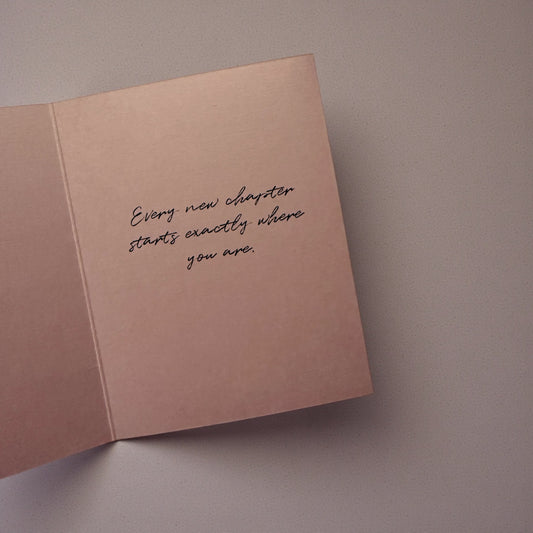 Every new chapter
starts exactly where
you are.